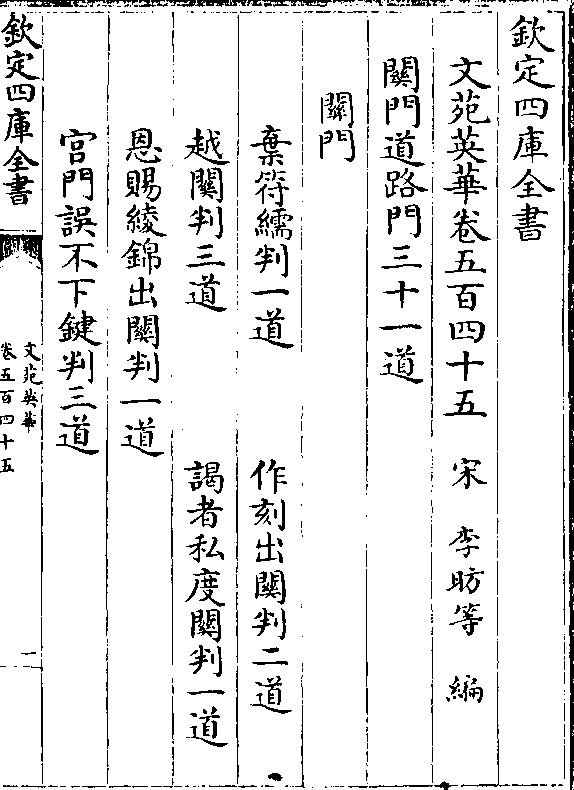 欽定四庫全書
文苑英華卷五百四十五 宋 李昉等 編
關門道路門三十一道
關門
棄符繻判一道 作刻出關判二道
越關判三道 謁者私度關判一道
恩賜綾錦出關判一道
宮門誤不下鍵判三道
欽定四庫全書
文苑英華
卷五百四十五